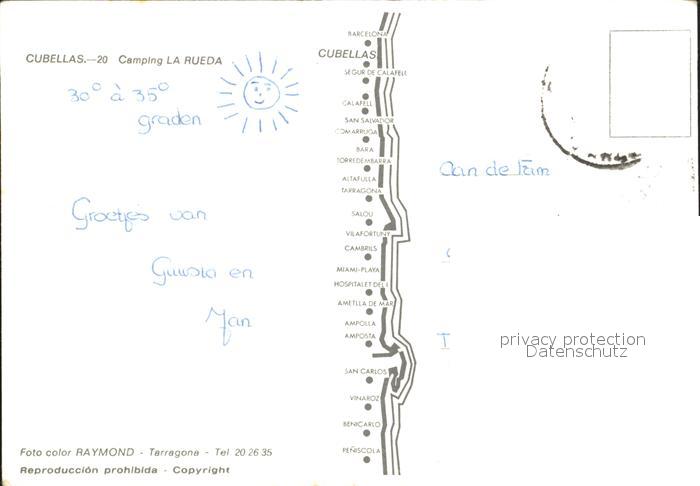 CUBELLAS.—20 Camping LA RUEDA
30° à 35°
graden
Groetjes van
en
Jan
Foto color RAYMOND - Tarragona - Tel 20 26 35
Reproducción prohibida - Copyright
BARCELONA
CUBELLAS
SEGUR DE CALAFELL
CALAFELL
SAN SALVADOR
COMARRUGA
BARA
TORREDEMBARRA
ALTAFULLA
TARRAGONA
SALOU
VILAFORTUNY
CAMBRILS
MIAMI-PLAYA
HOSPITALET DEL I
AMETLLA DE MAR
AMPOLLA
AMPOSTA
SAN CARLOS
VINAROZ
BENICARLO
PEÑISCOLA
Aan de
privacy protection
Datenschutz